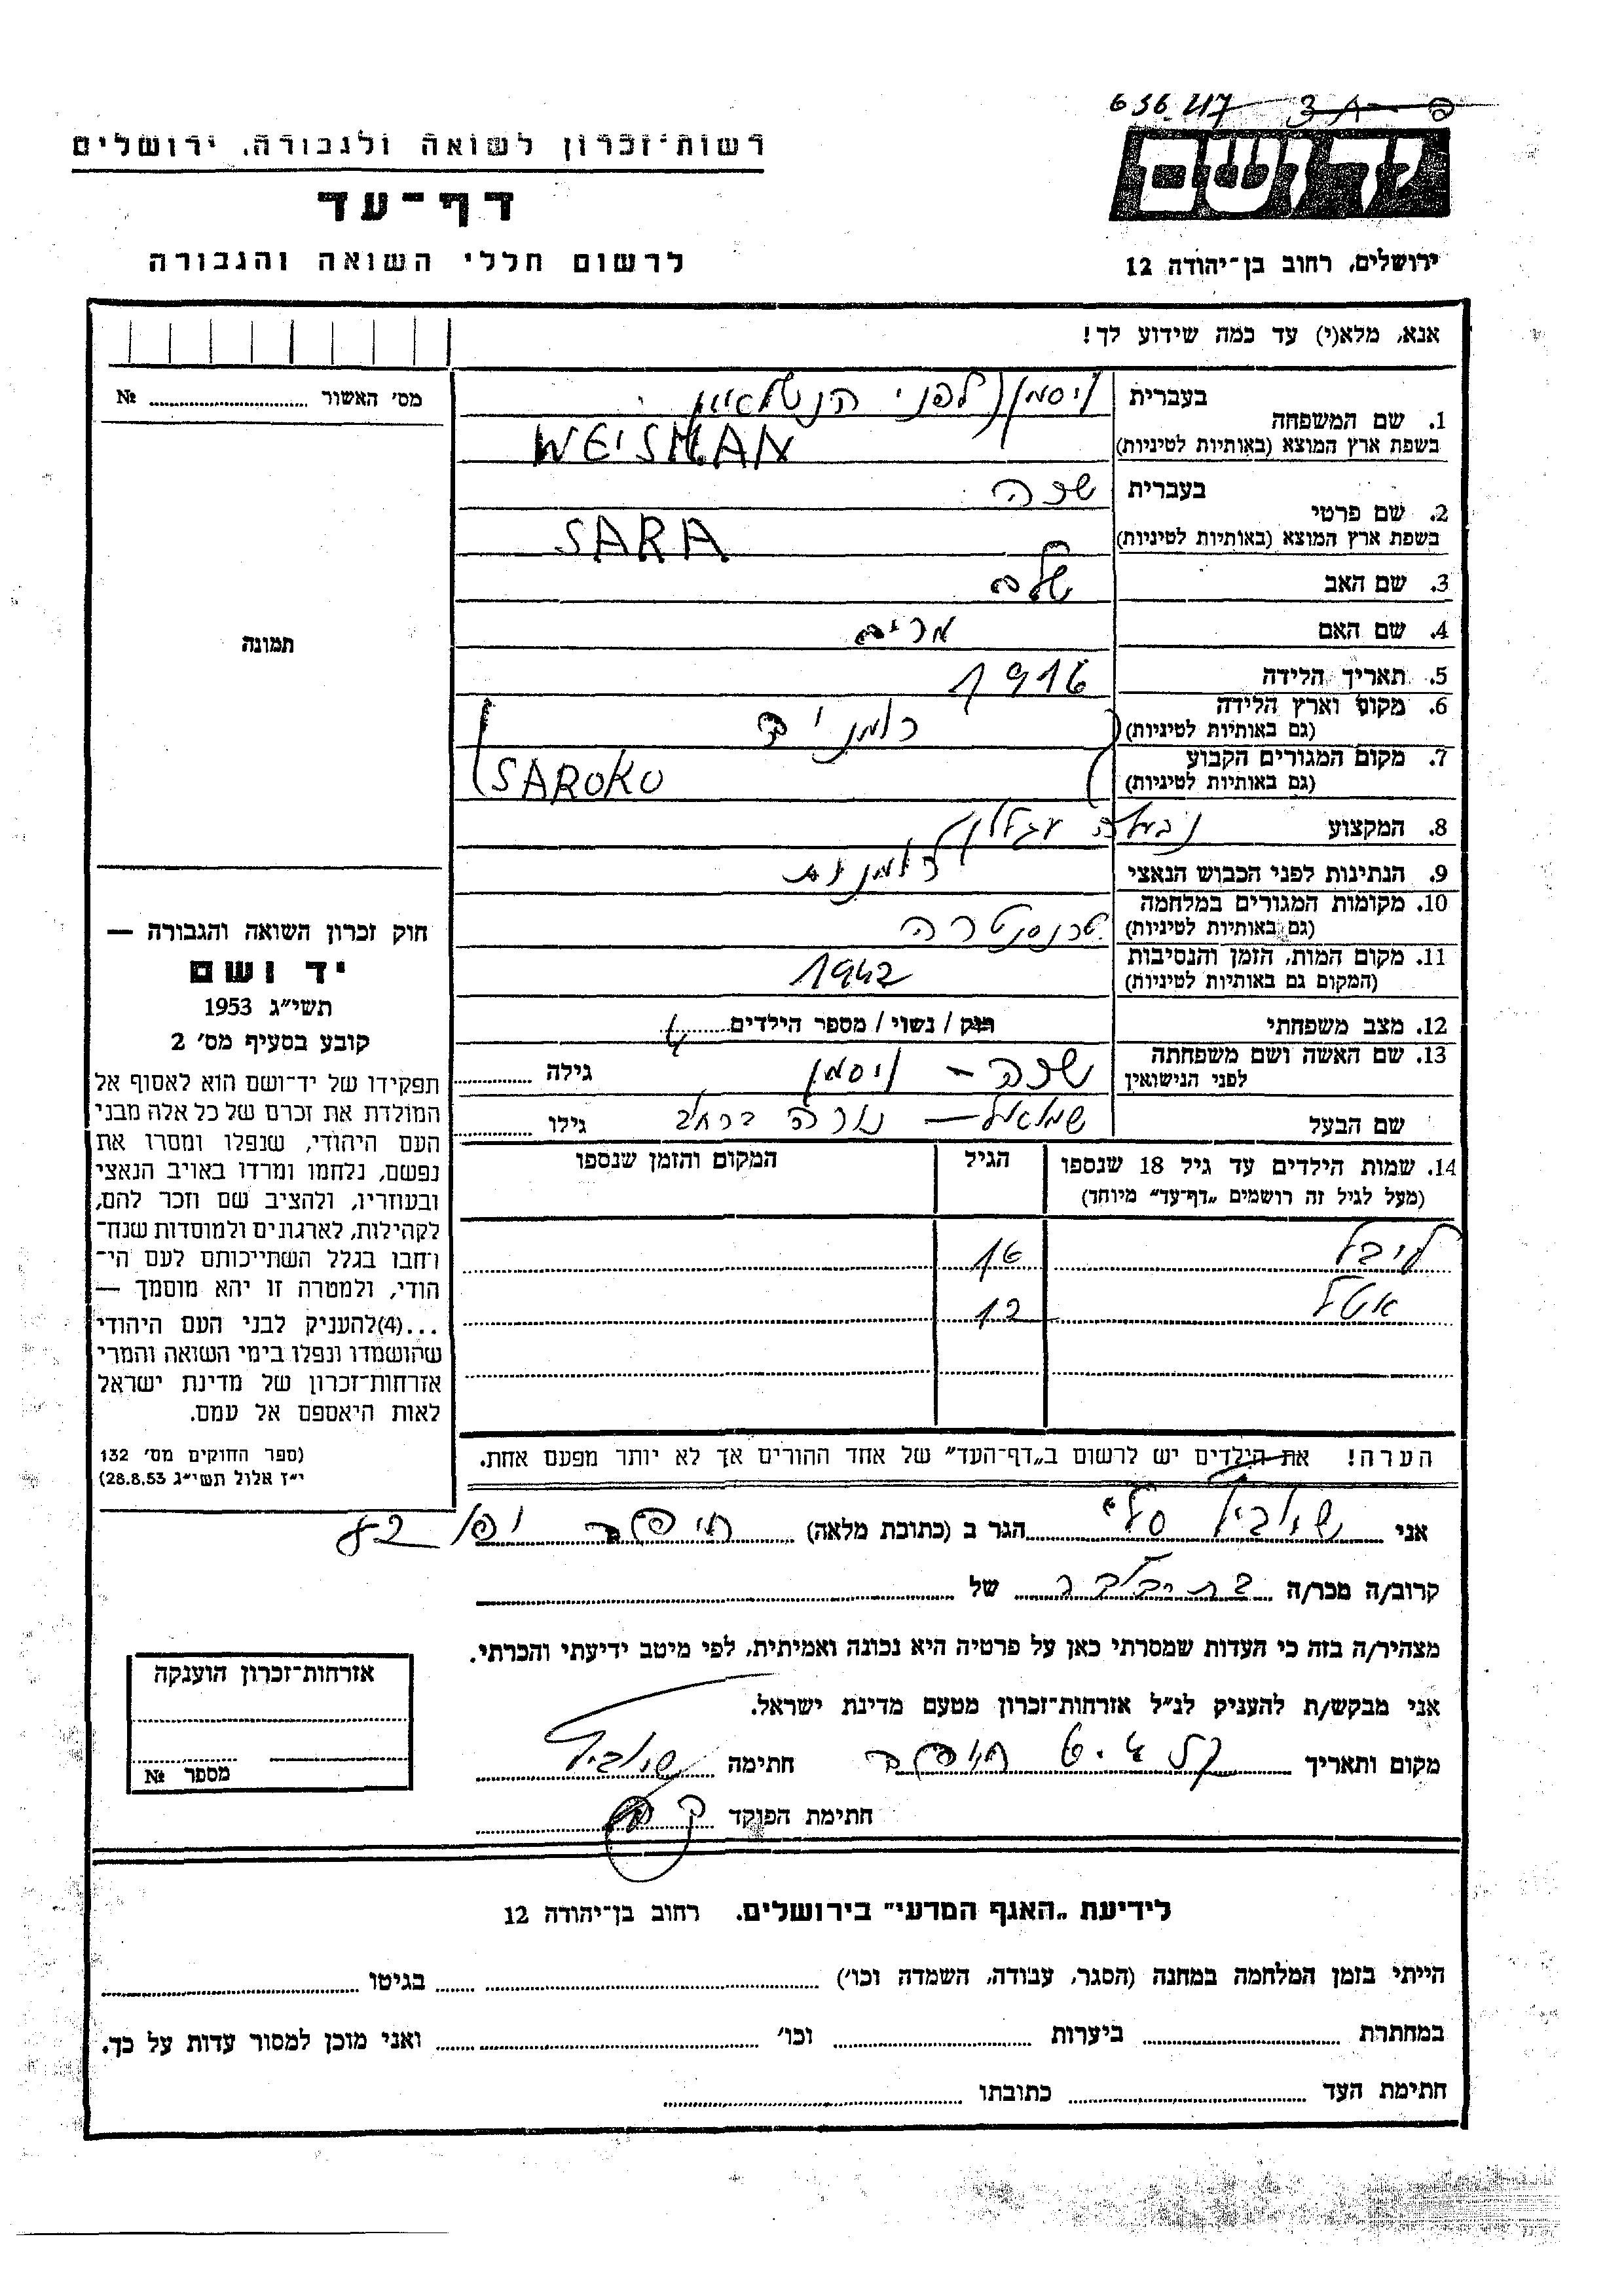 636.417
רשות־זכרון לשואה ולגבורה, ירושלים
דף־עד
לרשום חללי השואה והגבורה
ירושלים, רחוב בן־יהודה 12
אנא, מלא(י) עד כמה שידוע לך!
מס׳ האשור № 
1. שם המשפחה
בעברית ויסמן (לפני הנשואין
בשפת ארץ המוצא (באותיות לטיניות) WEISMAN
2. שם פרטי
בעברית שרה
בשפת ארץ המוצא (באותיות לטיניות) SARA
3. שם האב
4. שם האם מרים
5. תאריך הלידה 1916
6. מקום וארץ הלידה
(גם באותיות לטיניות) רומניה
7. מקום המגורים הקבוע
(גם באותיות לטיניות) SAROKO
8. המקצוע
9. הנתינות לפני הכבוש הנאצי
10. מקומות המגורים במלחמה
(גם באותיות לטיניות)
11. מקום המות, הזמן והנסיבות
(המקום גם באותיות לטיניות) 1942
12. מצב משפחתי רוק / נשוי / מספר הילדים 4
13. שם האשה ושם משפחתה
לפני הנישואין שרה – ויסמן גילה
שם הבעל שמואל – גילו
14. שמות הילדים עד גיל 18 שנספו הגיל המקום והזמן שנספו
(מעל לגיל זה רושמים „דף־עד״ מיוחד)
לייבל 16
אטל 12
הערה! את הילדים יש לרשום ב„דף־העד״ של אחד ההורים אך לא יותר מפעם אחת.
תמונה
חוק זכרון השואה והגבורה —
יד ושם
תשי״ג 1953
קובע בסעיף מס׳ 2
תפקידו של יד־ושם הוא לאסוף אל
המולדת את זכרם של כל אלה מבני
העם היהודי, שנפלו ומסרו את
נפשם, נלחמו ומרדו באויב הנאצי
ובעוזריו, ולהציב שם וזכר להם,
לקהילות, לארגונים ולמוסדות שנח־
רחבו בגלל השתייכותם לעם הי־
הודי, ולמטרה זו יהא מוסמך —
...(4)להעניק לבני העם היהודי
שהושמדו ונפלו בימי השואה והמרי
אזרחות־זכרון של מדינת ישראל
לאות היאספם אל עמם.
(ספר החוקים מס׳ 132
י״ז אלול תשי״ג 28.8.53)
אני הגר ב (כתובת מלאה) חיפה יפו 82
קרוב/ה מכר/ה של
מצהיר/ה בזה כי העדות שמסרתי כאן על פרטיה היא נכונה ואמיתית, לפי מיטב ידיעתי והכרתי.
אני מבקש/ת להעניק לנ״ל אזרחות־זכרון מטעם מדינת ישראל.
מקום ותאריך חיפה חתימה
חתימת הפוקד
אזרחות־זכרון הוענקה
מספר №
לידיעת „האגף המדעי״ בירושלים. רחוב בן־יהודה 12
הייתי בזמן המלחמה במחנה (הסגר, עבודה, השמדה וכו׳) בגיטו
במחתרת ביערות וכו׳ ואני מוכן למסור עדות על כך.
חתימת העד כתובתו